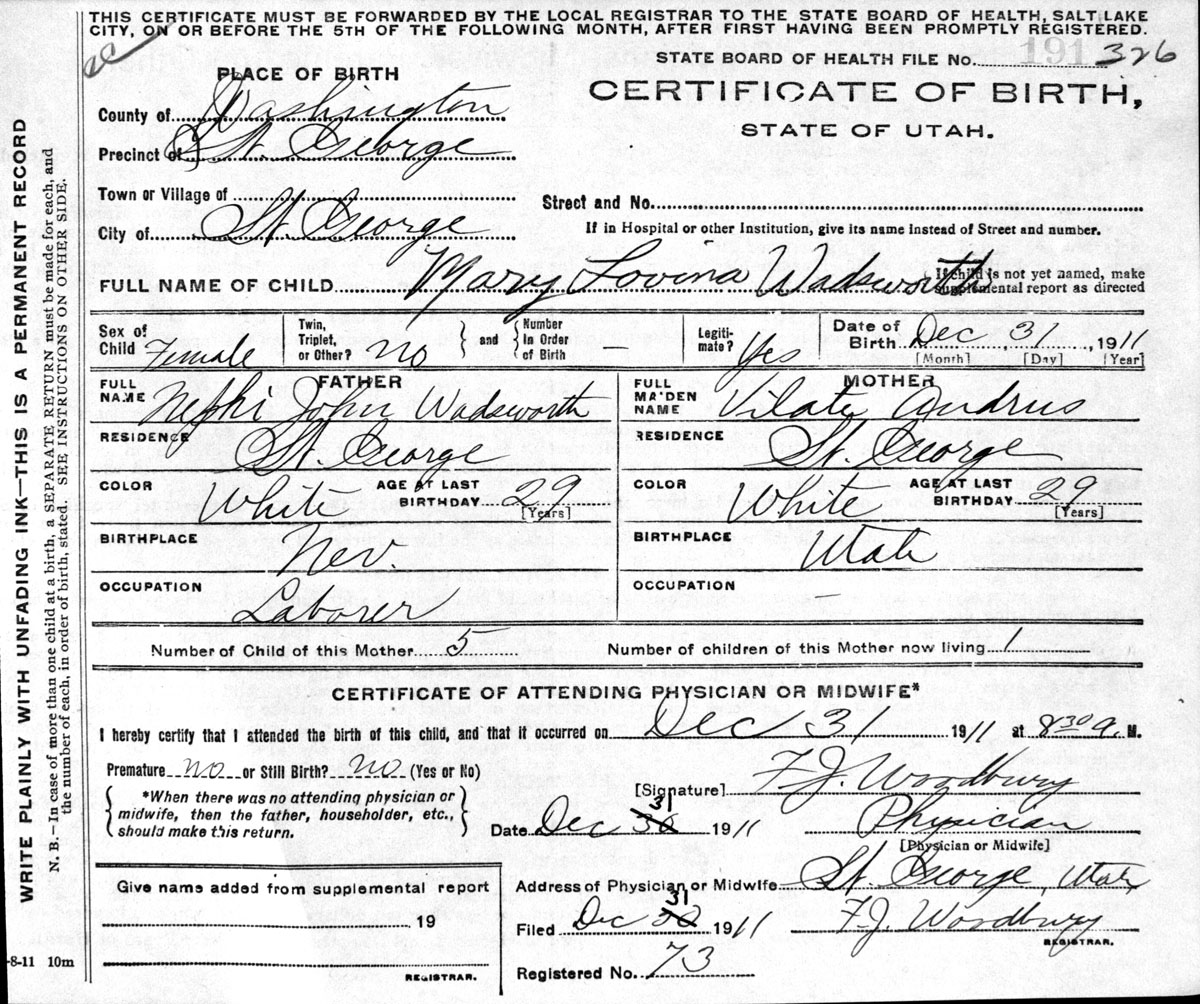 THIS CERTIFICATE MUST BE FORWARDED BY THE LOCAL REGISTRAR TO THE STATE BOARD OF HEALTH, SALT LAKE
CITY, ON OR BEFORE THE 5TH OF THE FOLLOWING MONTH, AFTER FIRST HAVING BEEN PROMPTLY REGISTERED.
STATE BOARD OF HEALTH FILE No. 191 326
PLACE OF BIRTH
CERTIFICATE OF BIRTH,
STATE OF UTAH.
County of Washington
Precinct of St. George
Town or Village of
Street and No.
City of St. George
If in Hospital or other Institution, give its name instead of Street and number.
FULL NAME OF CHILD Mary Lovina Wadsworth
If child is not yet named, make
supplemental report as directed
Sex of Child Female
Twin, Triplet, or Other? no
and
Number In Order of Birth —
Legiti-mate? Yes
Date of Birth Dec 31, 1911
[Month] [Day] [Year]
FATHER
FULL NAME Nephi John Wadsworth
MOTHER
FULL MAIDEN NAME Vilate Andrus
RESIDENCE St. George
RESIDENCE St. George
COLOR White AGE AT LAST BIRTHDAY 29 [Years]
COLOR White AGE AT LAST BIRTHDAY 29 [Years]
BIRTHPLACE Nev.
BIRTHPLACE Utah
OCCUPATION Laborer
OCCUPATION —
Number of Child of this Mother 5
Number of children of this Mother now living 1
CERTIFICATE OF ATTENDING PHYSICIAN OR MIDWIFE*
I hereby certify that I attended the birth of this child, and that it occurred on Dec 31 1911 at 8 30 a. M.
Premature no or Still Birth? no (Yes or No)
[Signature] F. J. Woodbury
*When there was no attending physician or
midwife, then the father, householder, etc.,
should make this return.
Date Dec 30 31 1911
Physician
[Physician or Midwife]
Address of Physician or Midwife St. George, Utah
Give name added from supplemental report
19
REGISTRAR.
Filed Dec 30 31 1911
F. J. Woodbury
REGISTRAR.
Registered No. 73
-8-11 10m
WRITE PLAINLY WITH UNFADING INK—THIS IS A PERMANENT RECORD
N. B.—In case of more than one child at a birth, a SEPARATE RETURN must be made for each, and
the number of each, in order of birth, stated. SEE INSTRUCTIONS ON OTHER SIDE.